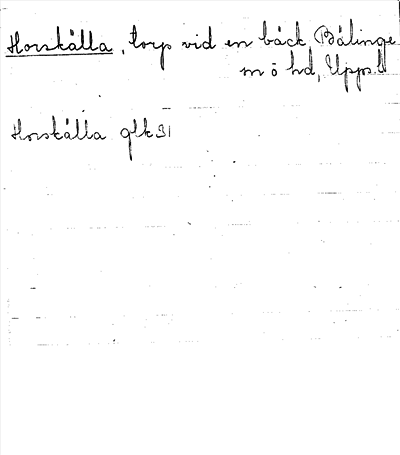 Horskälla, torp vid en bäck, Bälinge
sn ö hd, Upps. l
Horskälla glk 31